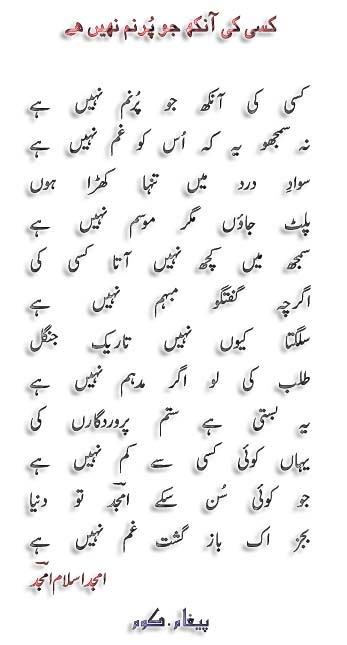 کسی کی آنکھ جو پُرنم نہیں ہے
کسی کی آنکھ جو پُرنم نہیں ہے
نہ سمجھو یہ کہ اُس کو غم نہیں ہے
سوادِ درد میں تنہا کھڑا ہوں
پلٹ جاؤں مگر موسم نہیں ہے
سمجھ میں کچھ نہیں آتا کسی کی
اگرچہ گفتگو مبہم نہیں ہے
سلگتا کیوں نہیں تاریک جنگل
طلب کی لو اگر مدہم نہیں ہے
یہ بستی ہے ستم پروردگاں کی
یہاں کوئی کسی سے کم نہیں ہے
جو کوئی سُن سکے امجد تو دنیا
بجز اک باز گشت غم نہیں ہے
امجد اسلام امجد
پیغام.کوم